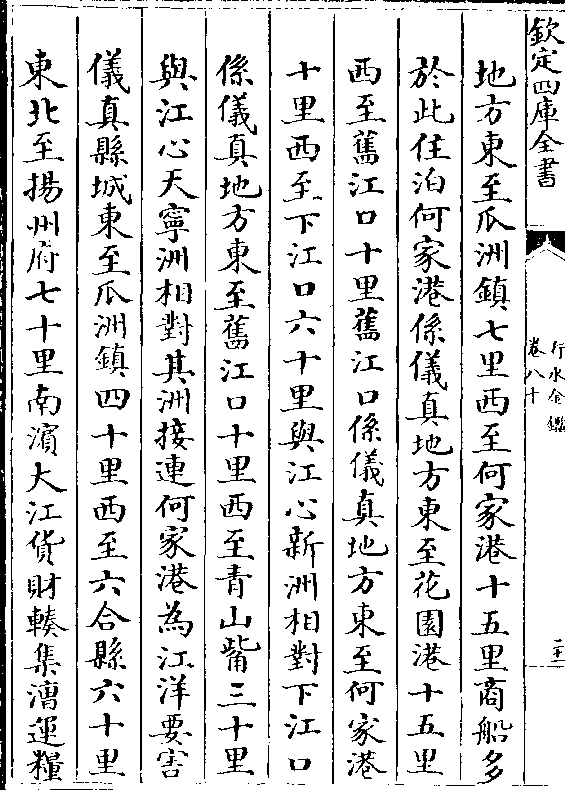 欽定四庫全書
行水金鑑
卷八十
地方東至瓜洲鎮七里西至何家港十五里商船多
於此住泊何家港係儀真地方東至花園港十五里
西至舊江口十里舊江口係儀真地方東至何家港
十里西至下江口六十里與江心新洲相對下江口
係儀真地方東至舊江口十里西至青山觜三十里
與江心天寧洲相對其洲接連何家港為江洋要害
儀真縣城東至瓜洲鎮四十里西至六合縣六十里
東北至揚州府七十里南濱大江貨財輳集漕運糧